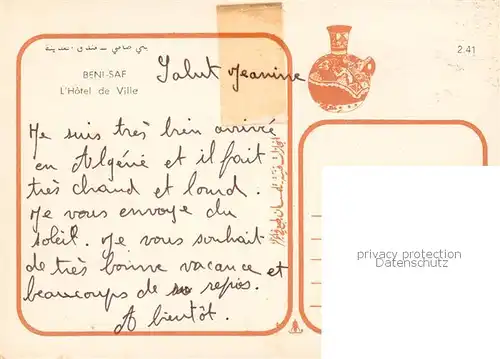 بني صاف – فندق المدينة
BENI-SAF
L'Hôtel de Ville
2.41
Salut Jeanine
Je suis très bien arrivée
en Algérie et il fait
très chaud et lourd.
Je vous envoye du
soleil. Je vous souhait
de très bonne vacance et
beaucoups de repos.
A bientôt.
privacy protection
Datenschutz